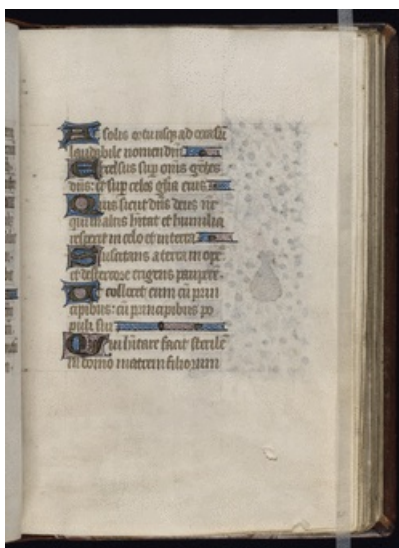 A solis ortu usq; ad occasū
laudabile nomen dn̄i
Excelsus sup om̄s gētes
dn̄s: et sup celos gl̄ia eius
Quis sicut dn̄s deus nr̄
qui in altis hītat et humilia
respicit in celo et in terra
Suscitans a terra inopē
et de stercore erigens pauperē.
Ut collocet eum cū prin
cipibus: cū principibus po
puli sui
Qui hītare facit sterilē
in domo matrem filiorum